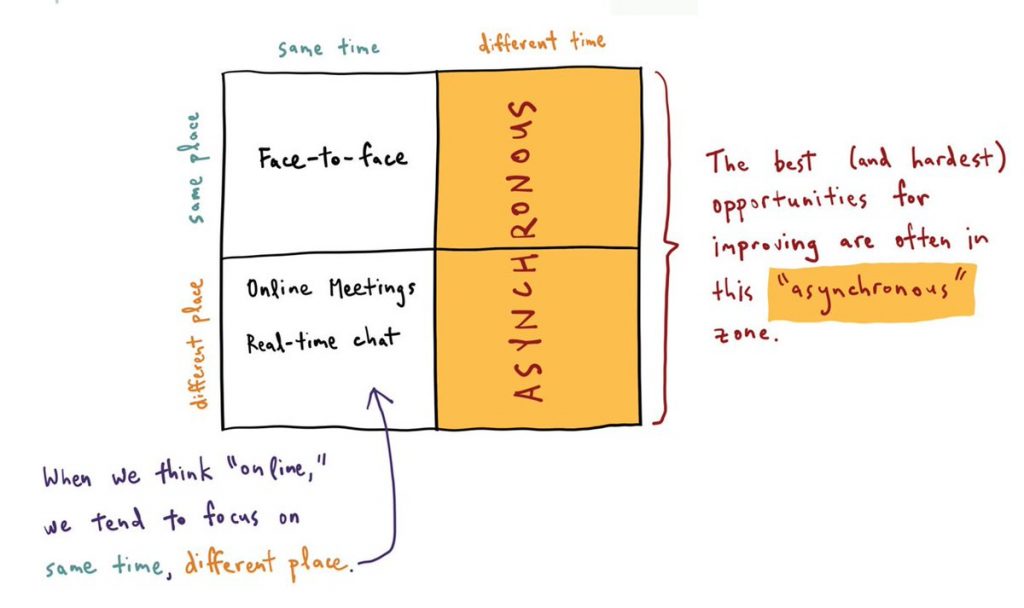 same time
different time
same place
different place
Face-to-face
Online Meetings
Real-time chat
ASYNCHRONOUS
The best (and hardest)
opportunities for
improving are often in
this "asynchronous"
zone.
When we think "online,"
we tend to focus on
same time, different place.